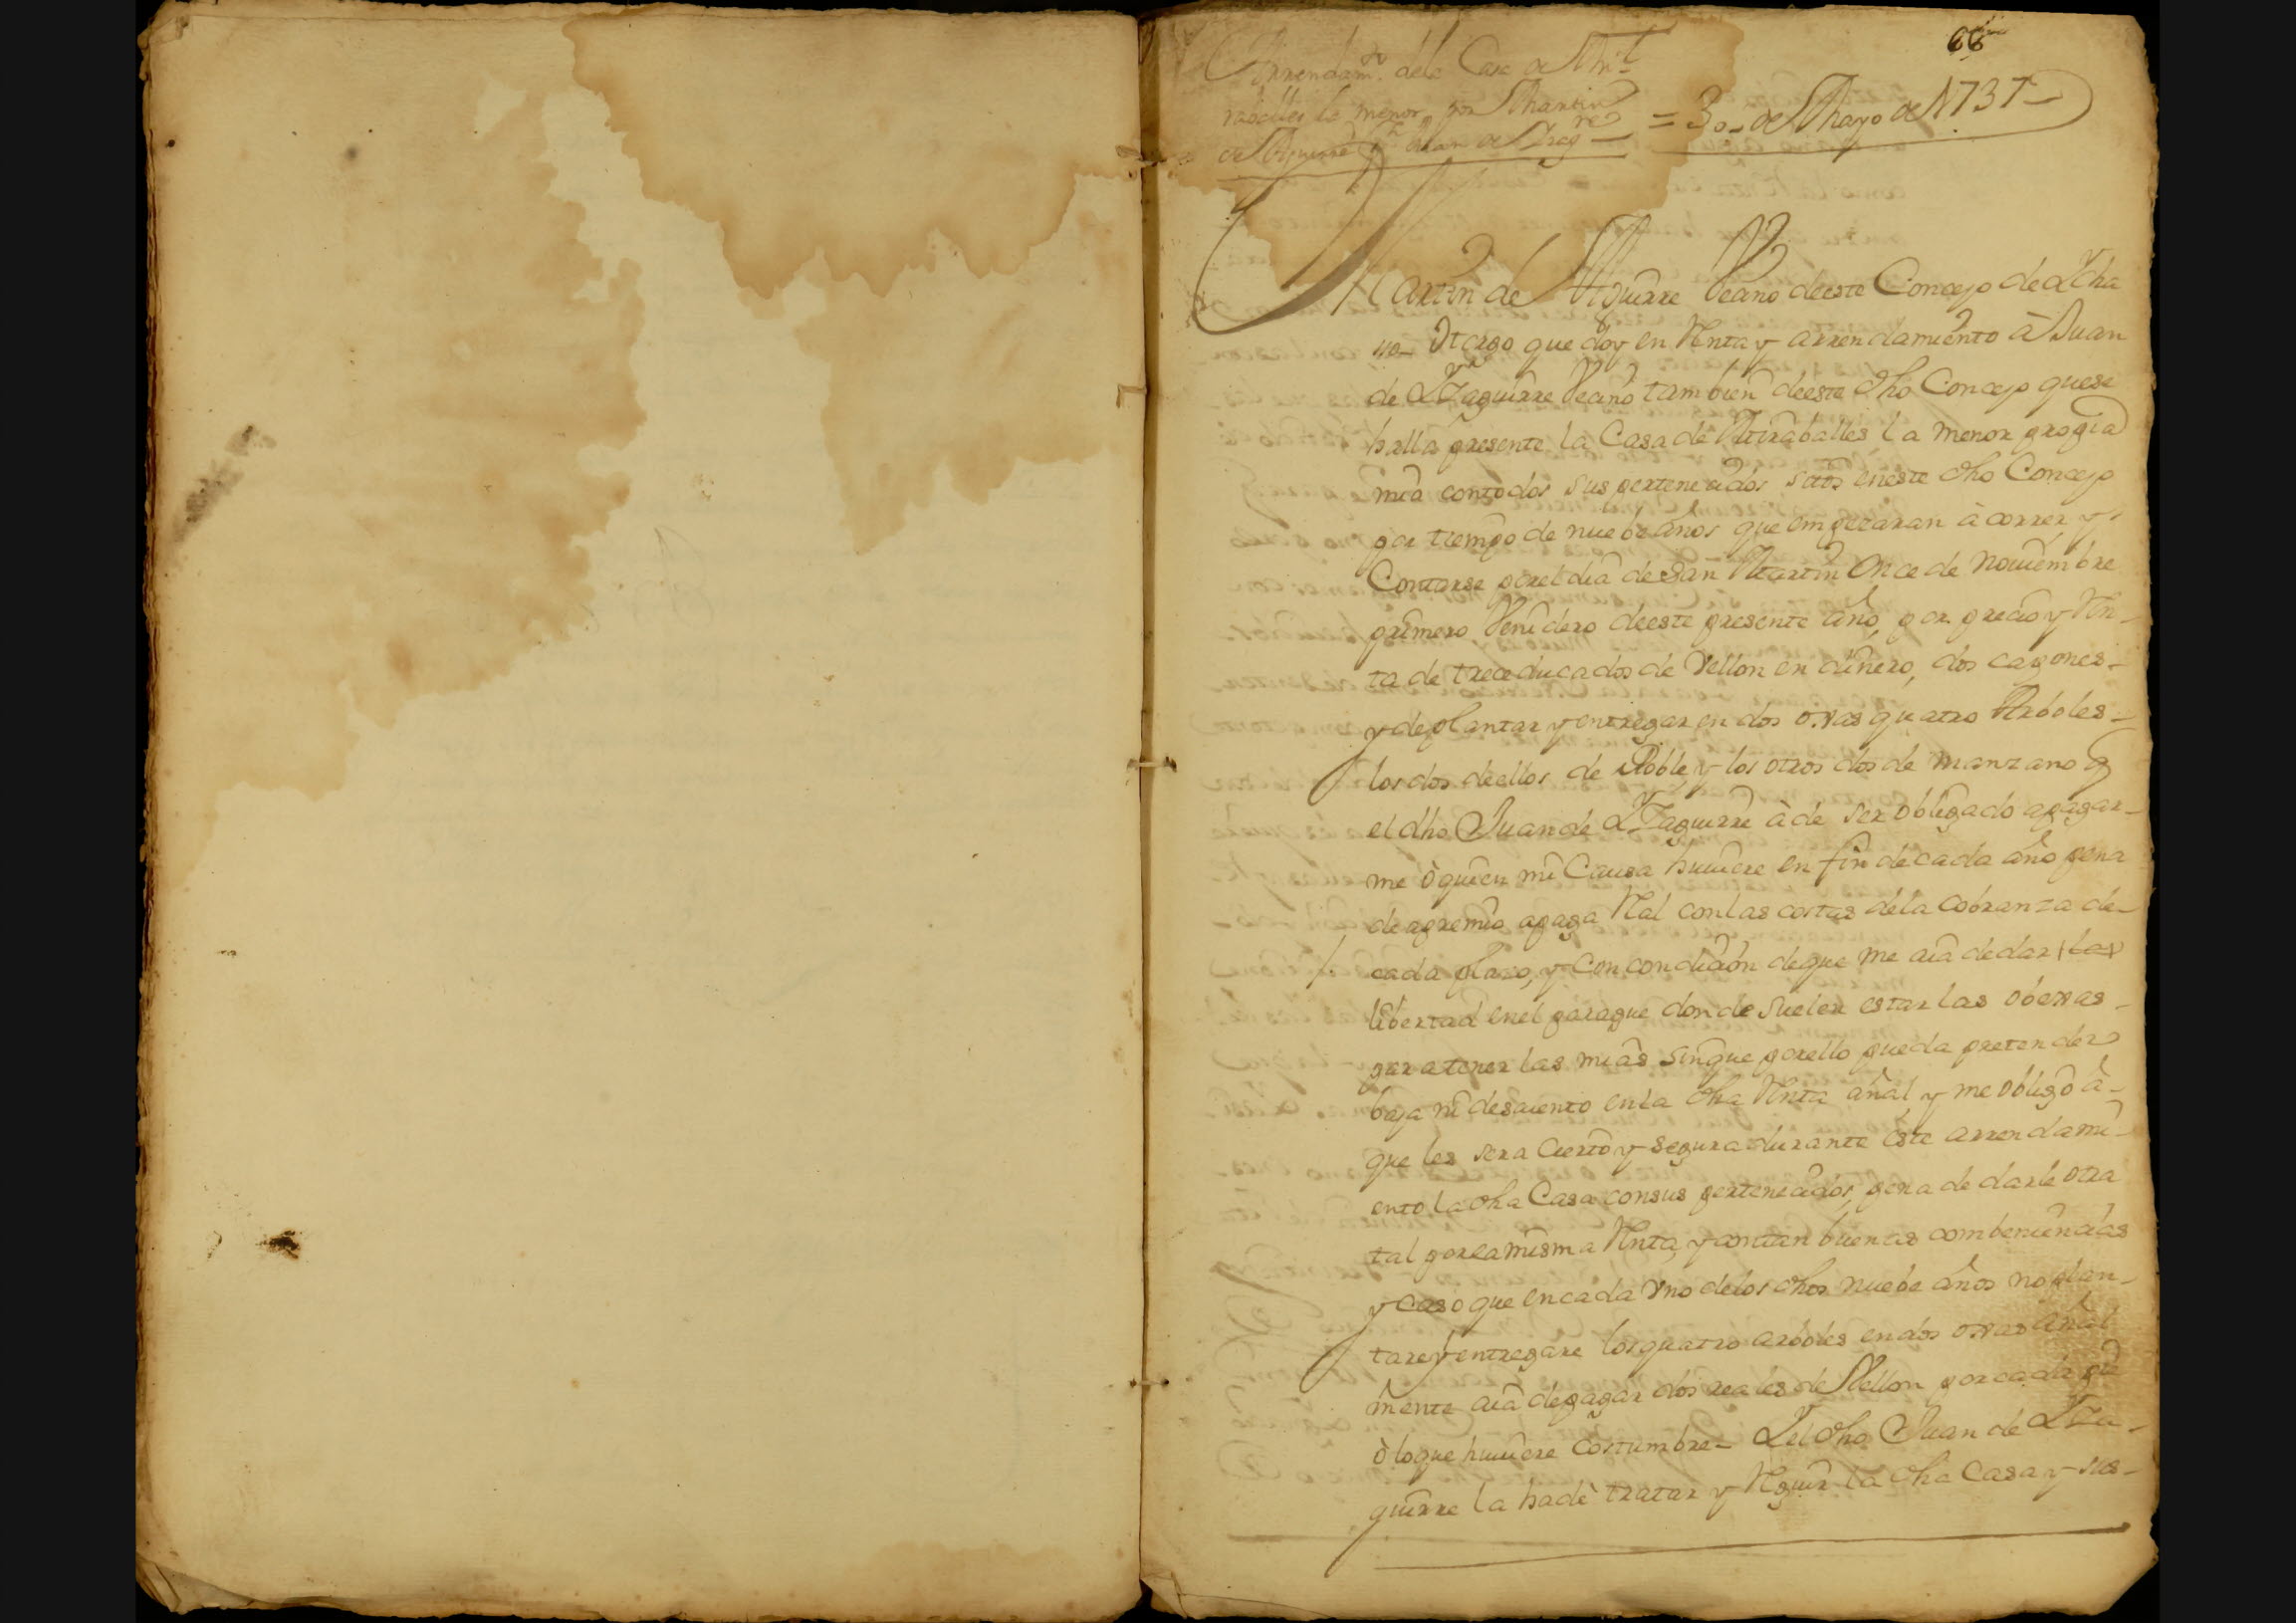 66
Arrendam.to dela Casa de Mi
raballes la menor por Martin
de Aguirre a Juan de Yzag.re
= 30 de Mayo de 1737
Martin de Aguirre Vecino deeste Concejo de Ycha
so Otorgo que doy en Renta y arrendamiento à Juan
de Yzaguirre Vecino tambien deeste dho Concejo quese
halla presente la Casa de Miraballes la menor propia
mia contodos sus pertenecidos sitos eneste dho Concejo
por tiempo de nuebe años que empezaran à correr y
Contarse porel dia de San Martin Once de Nouiembre
primero Venidero deeste presente año, por precio y Ren-
ta de trece ducados de Vellon en dinero, dos capones-
y de plantar y entregar en dos oxas quatro Arboles-
los dos deellos de Roble, y los otros dos de manzano q
el dho Juan de Yzaguirre à de ser obligado apagar-
me ò quien mi Causa huuiere en fin de cada año pena
de apremio apaga Real con las costas dela cobranza de-
cada plazo, y con condicion deque me aia de dar las
libertad enel paraque donde suelen estar las obexas-
para tener las mias sinque porello pueda pretender
baja ni descuento enla dha Renta añal y me obligo à-
que les sera cierto y segura durante este arrendami-
ento la dha Casa consus pertenecidos, pena de darle otra
tal porla misma Renta, y contan buenas combeniencias
y Caso que encada Vno delos dhos nuebe años no plan-
tare y entregare los quatro arboles en dos oxas añal
mente aia depagar dos reales de Vellon por cada pie
ò loque huuiere Costumbre- Y el dho Juan de Yza-
guirre la hade tratar y Reguir la dha Casa y sus-